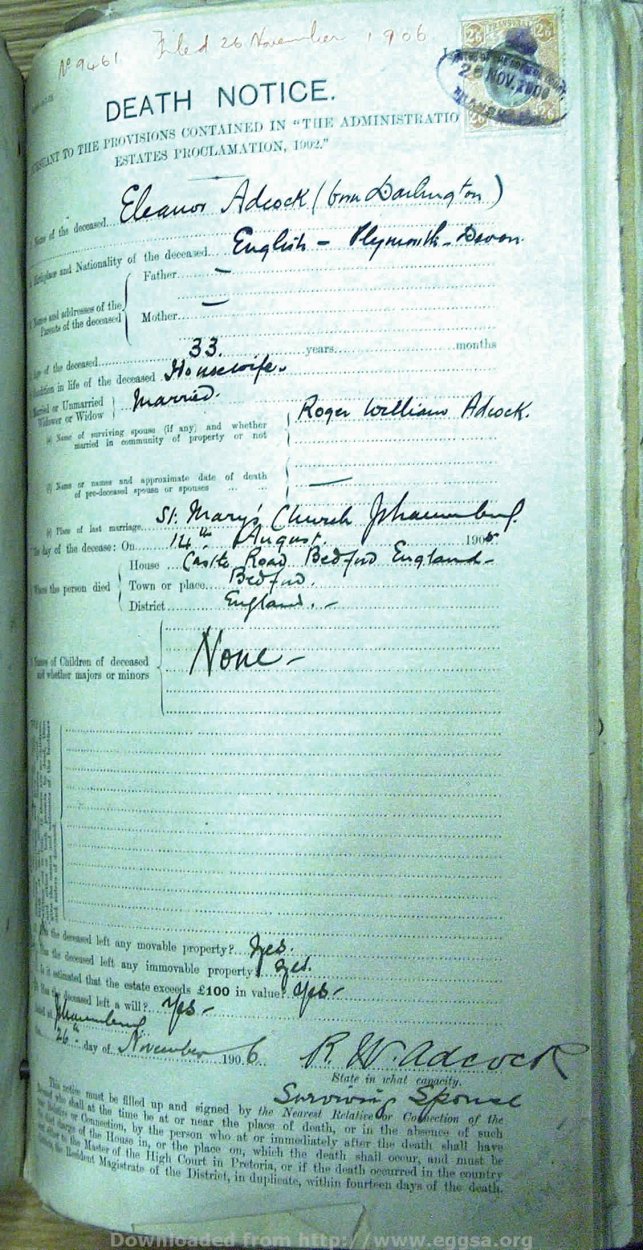 Nº 9461 Filed 26 November 1906
26 NOV. 1906
DEATH NOTICE.
TO THE PROVISIONS CONTAINED IN "THE ADMINISTRATIO
ESTATES PROCLAMATION, 1902."
Name of the deceased Eleanor Adcock (born Darlington)
Birthplace and Nationality of the deceased English - Plymouth - Devon
Names and addresses of the Parents of the deceased
Father —
Mother —
Age of the deceased 33 years months
Condition in life of the deceased Housewife.
Married or Unmarried Widower or Widow Married.
(a) Name of surviving spouse (if any) and whether married in community of property or not Roger William Adcock.
(b) Name or names and approximate date of death of pre-deceased spouse or spouses —
(c) Place of last marriage St. Mary's Church Johannesburg
The day of the decease: On 14th August 190
House Castle Road Bedford England -
Where the person died Town or place Bedford.
District England. -
Names of Children of deceased and whether majors or minors None -
the deceased left any movable property? Yes.
the deceased left any immovable property? Yes.
Is it estimated that the estate exceeds £100 in value? Yes -
deceased left a will? Yes -
Dated at Johannesburg
26th day of November 190 6. R. W. Adcock
State in what capacity.
Surviving Spouse
This notice must be filled up and signed by the Nearest Relative or Connection of the
who shall at the time be at or near the place of death, or in the absence of such
Relative or Connection, by the person who at or immediately after the death shall have
charge of the House in, or the place on, which the death shall occur, and must be
to the Master of the High Court in Pretoria, or if the death occurred in the country
the Resident Magistrate of the District, in duplicate, within fourteen days of the death.
Downloaded from http://www.eggsa.org